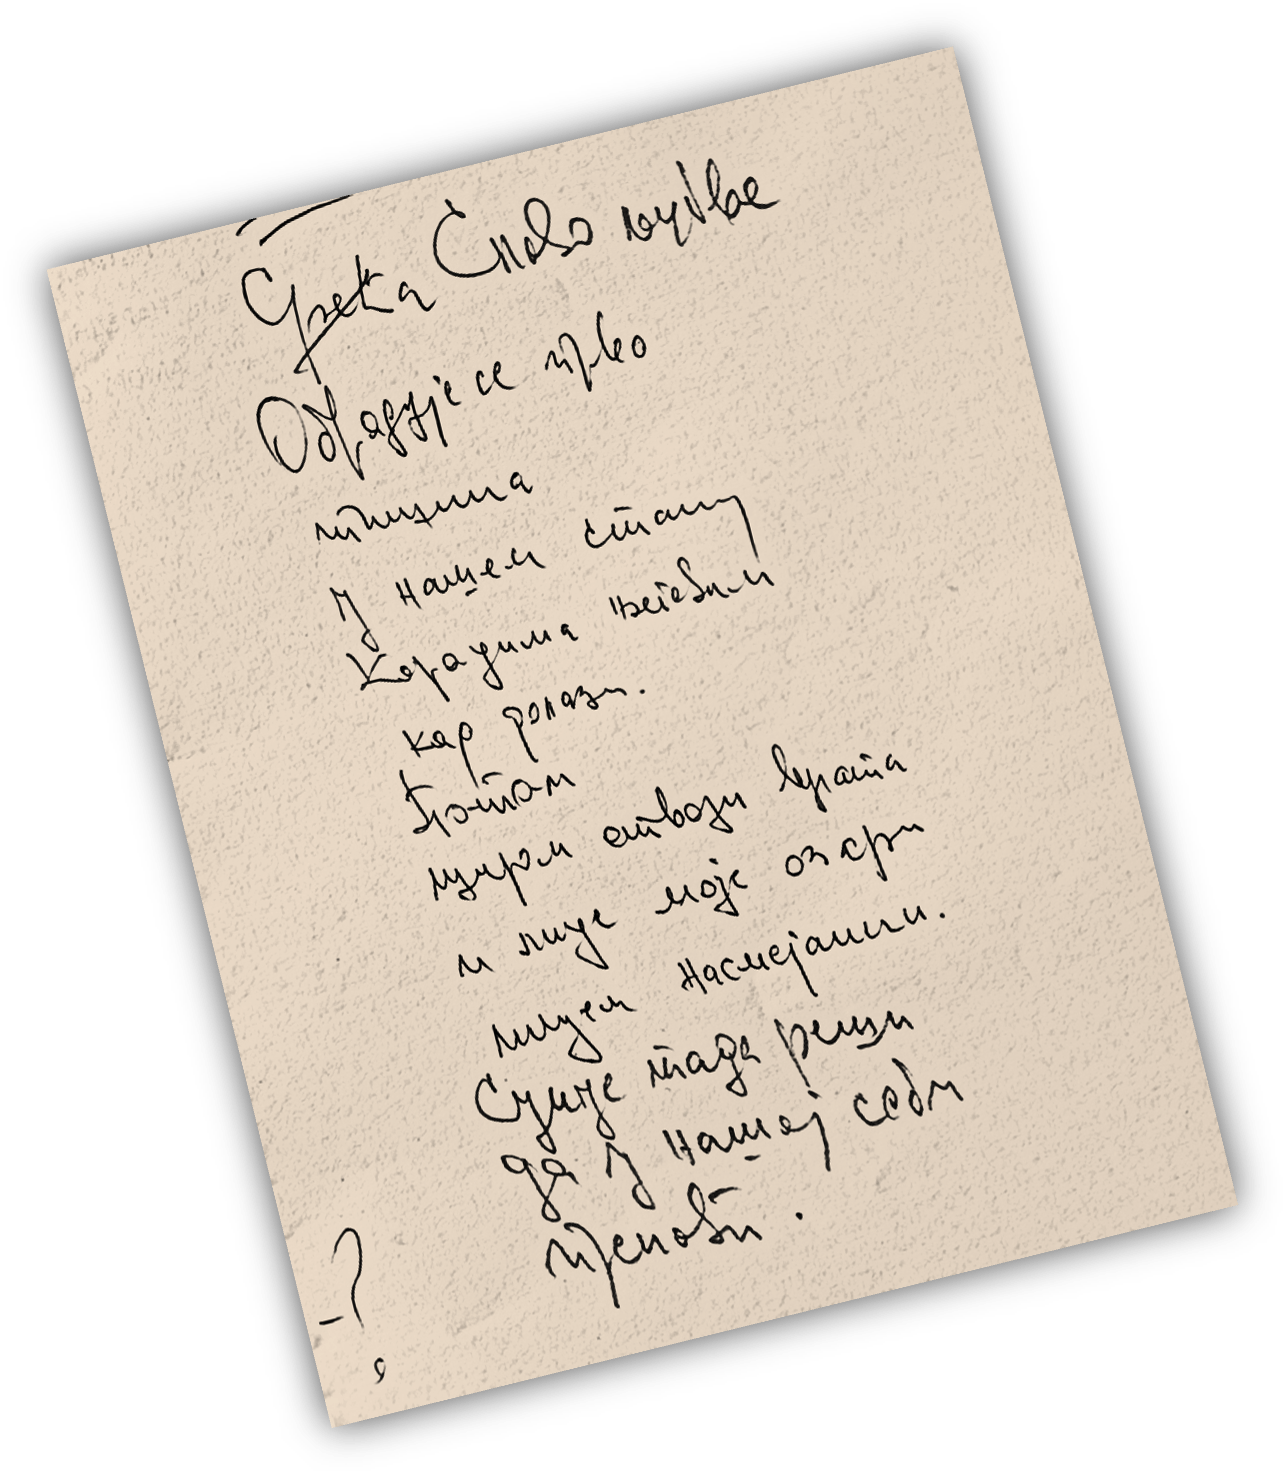 Срећа Слово љубве
Обрадује се прво
тишина
у нашем стану
Корацима његовим
кад долази.
Потом
широм отвори врата
и лице моје озари
лицем насмејаним.
Сунце тада реши
да у нашој соби
преноћи.